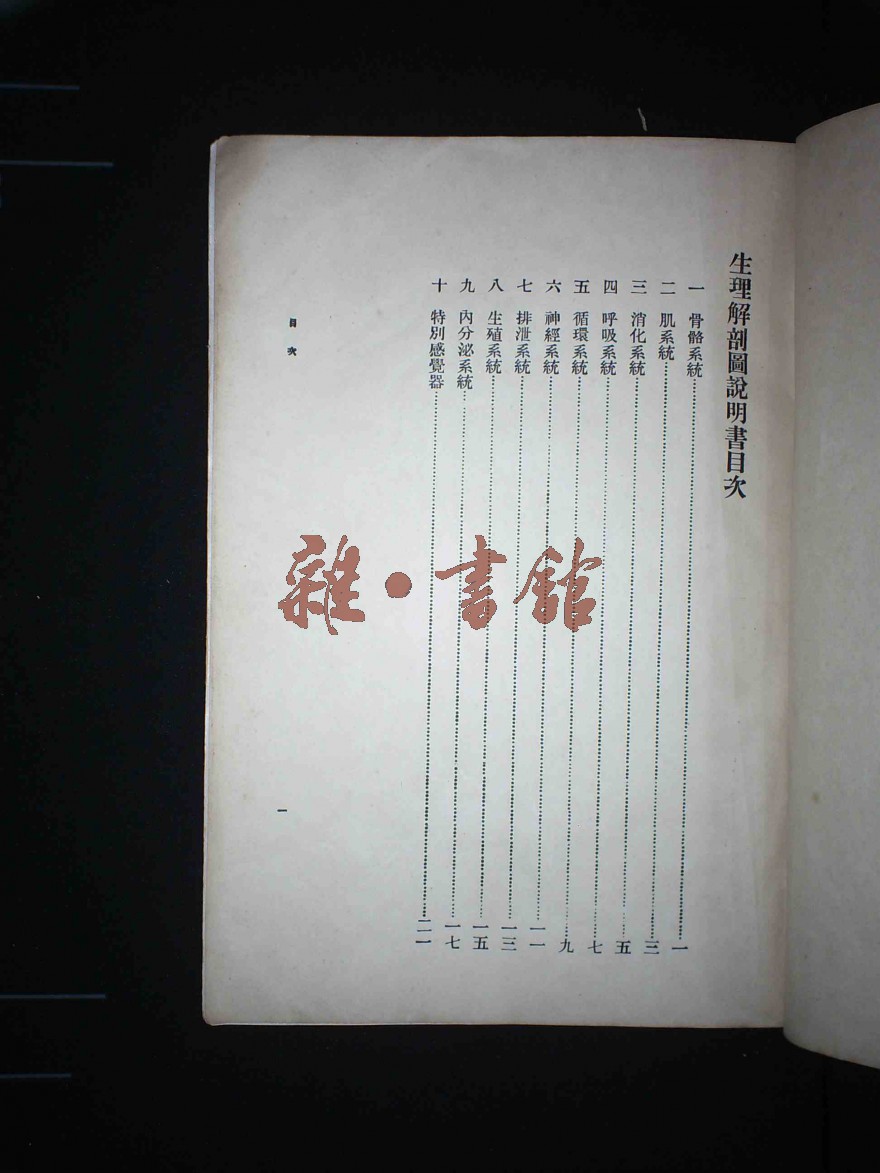 生理解剖圖說明書目次
一 骨骼系統……一
二 肌系統……三
三 消化系統……五
四 呼吸系統……七
五 循環系統……九
六 神經系統……一一
七 排泄系統……一三
八 生殖系統……一五
九 內分泌系統……一七
十 特別感覺器……二一
目次
一
雜·書館